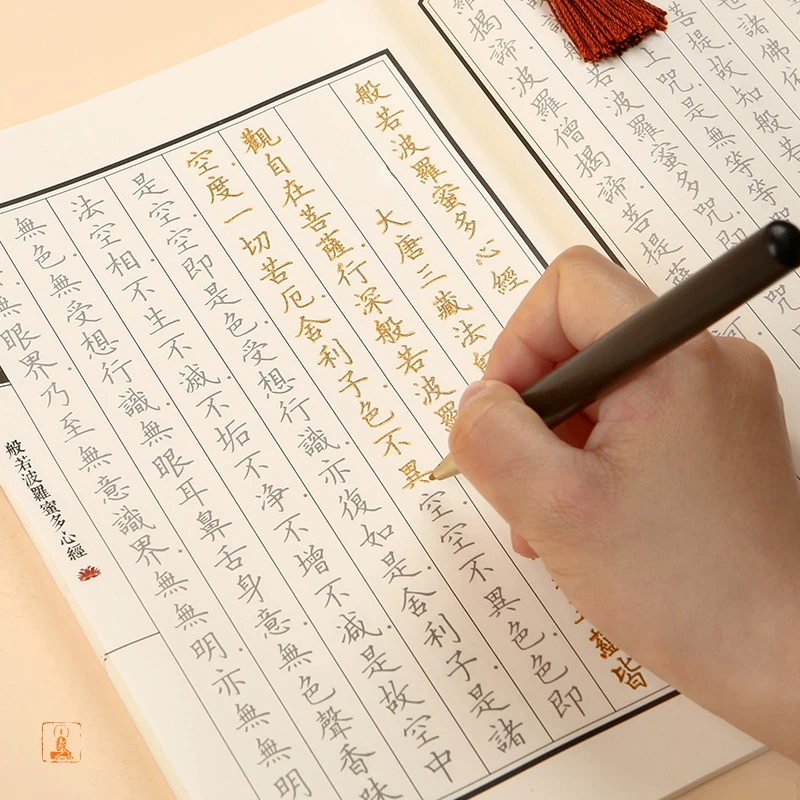 世諸佛依
菩提故知般若
上咒是無等等咒
若波羅蜜多咒即
羅揭諦波羅僧揭諦菩提薩
般若波羅蜜多心經
大唐三藏法
觀自在菩薩行深般若波羅
蘊皆
空度一切苦厄舍利子色不異空空不異色色即
是空空即是色受想行識亦復如是舍利子是諸
法空相不生不滅不垢不净不增不减是故空中
無色無受想行識無眼耳鼻舌身意無色聲香味
無眼界乃至無意識界無無明亦無無明
般若波羅蜜多心經